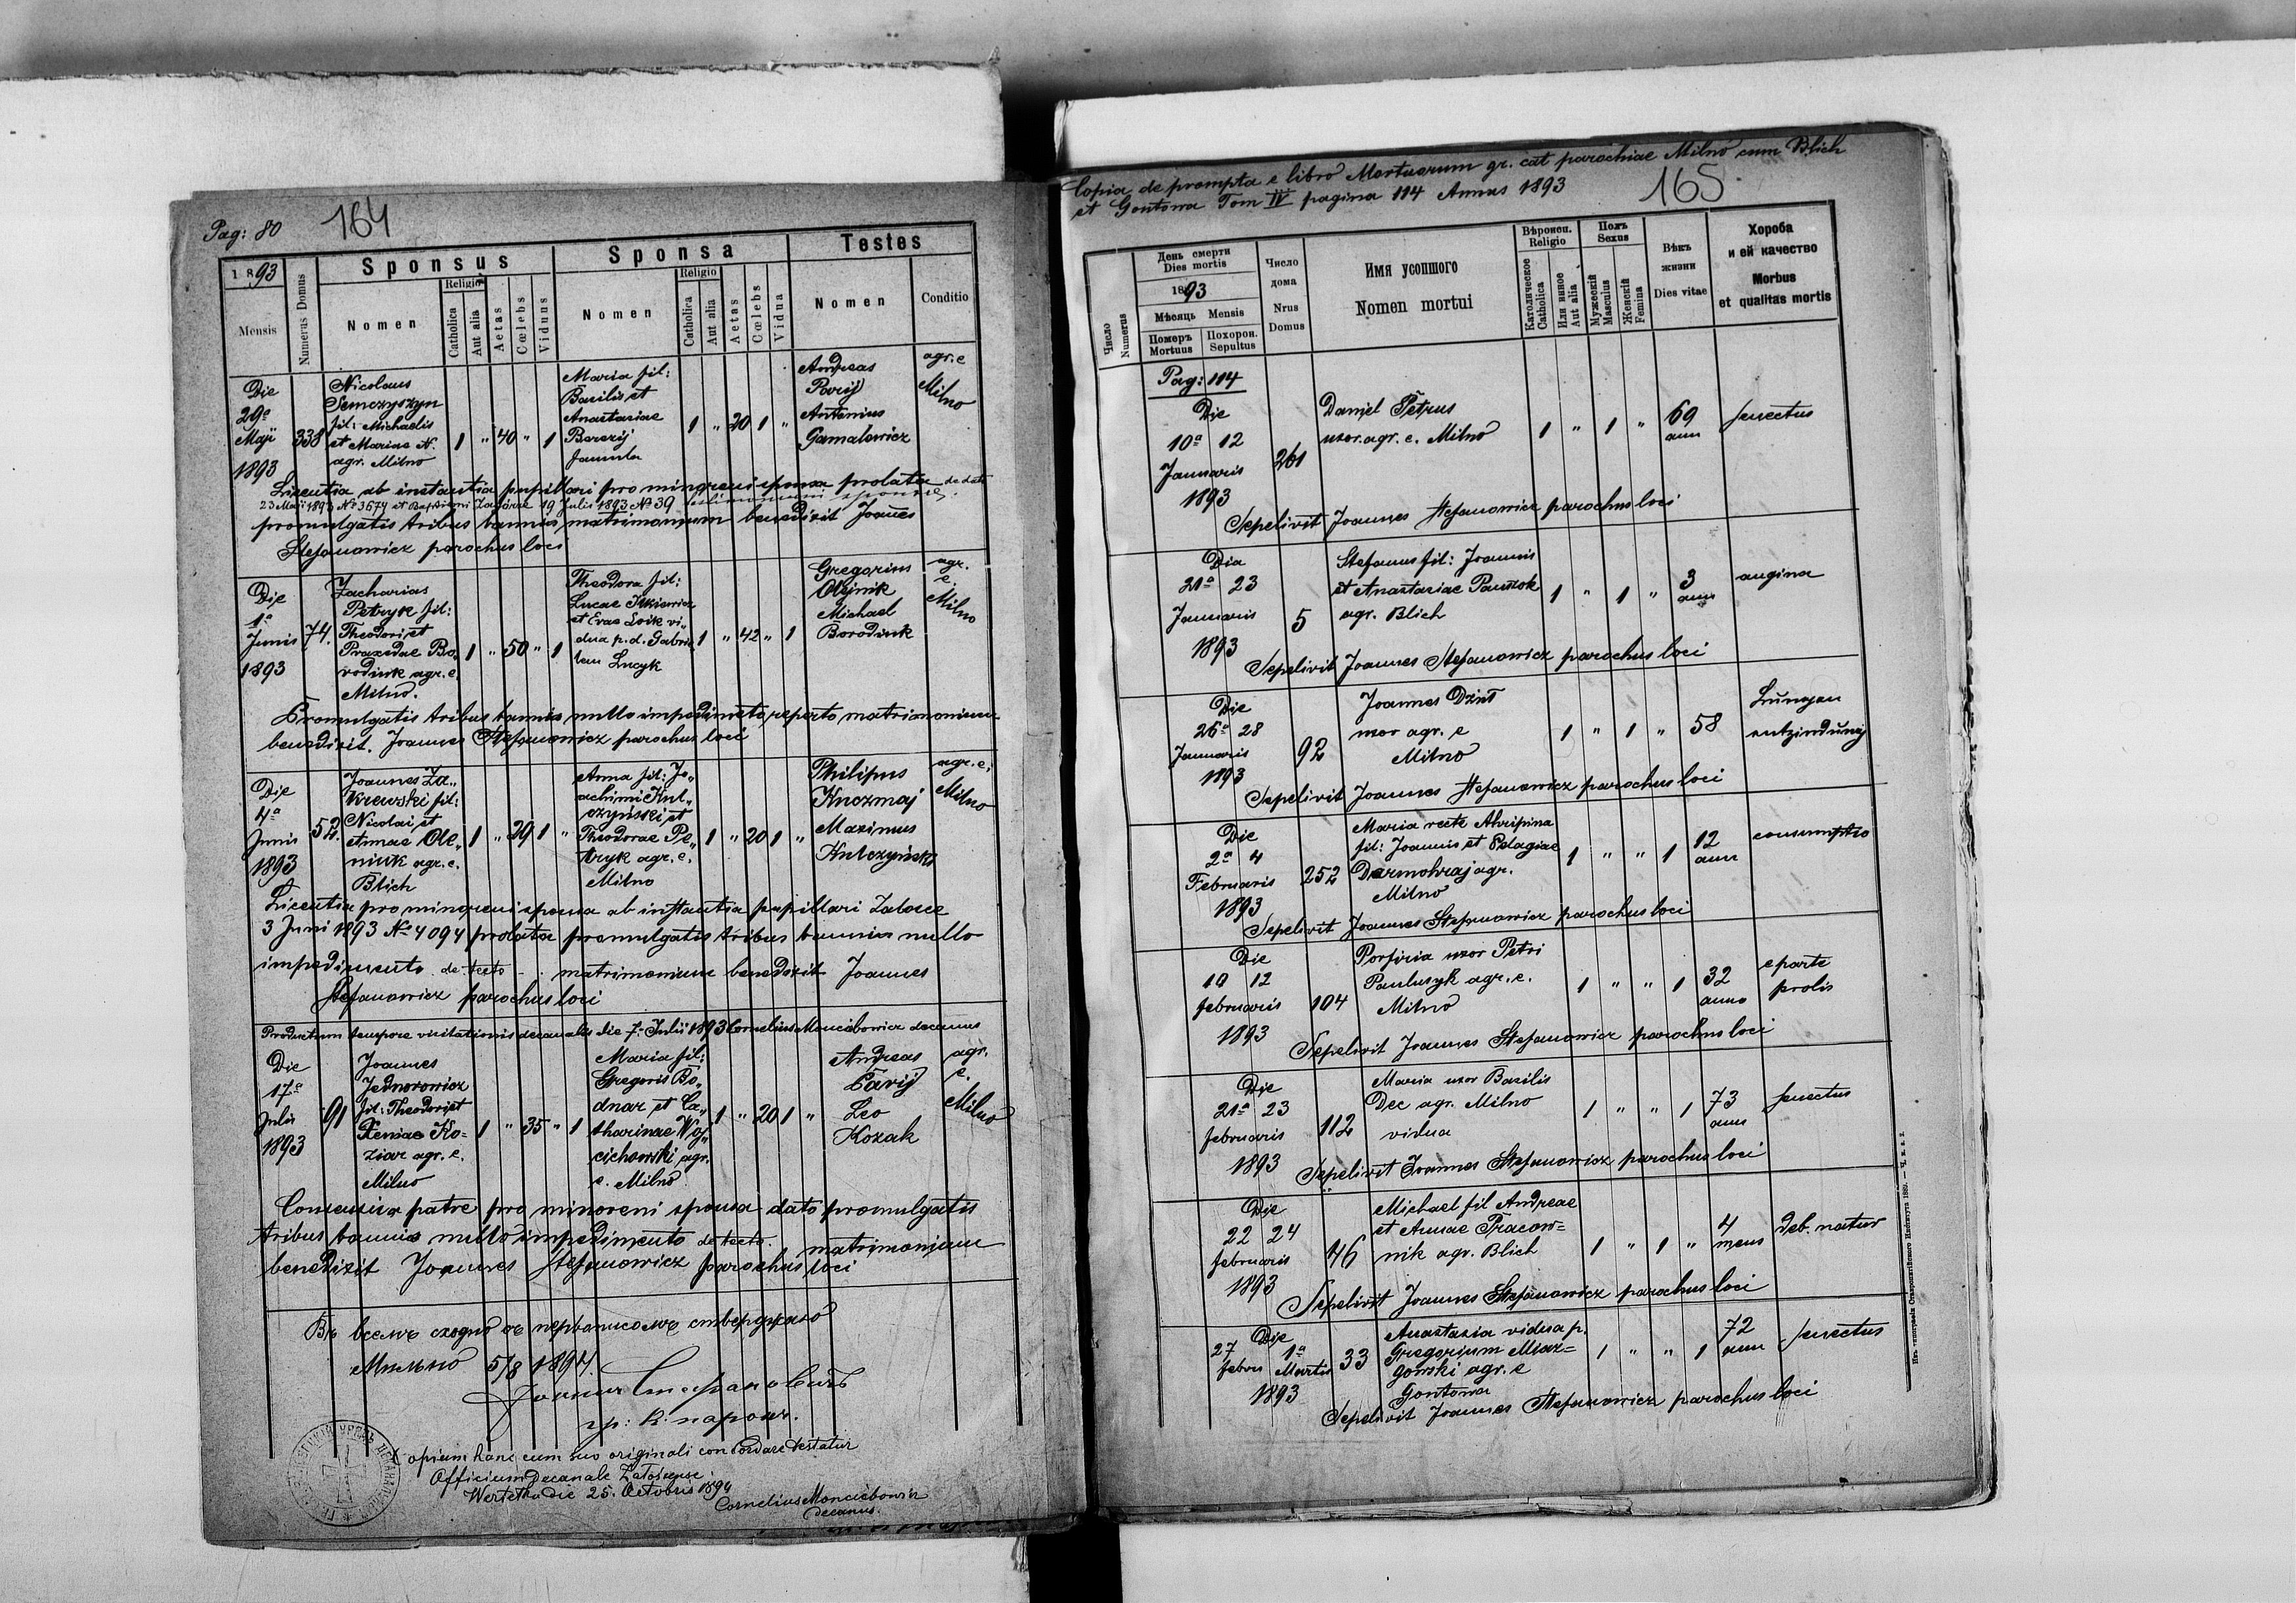 Pag: 80
164
1893
Mensis
Numerus Domus
Sponsus
Nomen
Religio
Catholica
Aut alia
Aetas
Cœlebs
Viduus
Sponsa
Nomen
Religio
Catholica
Aut alia
Aetas
Cœlebs
Vidua
Testes
Nomen
Conditio
Die
29a
Maji
1893
338
Nicolaus
Semczyszyn
fil: Michaelis
et Mariae N.
agr. Milno
1 " 40 " 1
Maria fil:
Basilis et
Anastasiae
Berezij
famula
1 " 20 1 "
Andreas
Parij
Antonius
Gamalowicz
agr. c
Milno
Licentia ab instantia pupillari pro minoreni sponsa prolata de dato
23 Maji 1893 No 3674 et Baptismi Załośce 19 Julii 1893 No 39 testimonium sponsae.
promulgatis tribus bannis matrimonium benedixit Joannes
Stefanowicz parochus loci
Die
1a
Junis
1893
74.
Zacharias
Petryk fil:
Theodori et
Praxedae Bo„
rodiuk agr. c.
Milno.
1 " 50 " 1
Theodora fil:
Lucae Ilkiewicz
et Evae Loik vi„
dua p. d. Gabrie
lem Lucyk
1 " 42 " 1
Gregorius
Olijnik
Michael
Borodiuk
agr.
c.
Milno
Promulgatis tribus bannis nullo impedimeto reperto matrimonium
benedixit. Joannes Stefanowicz parochus loci
Die
4a
Junis
1893
52.
Joannes Za„
krewski fil:
Nicolai et
Annae Ole„
niuk agr. c.
Blich
1 " 29 1 "
Anna fil: Jo„
achimi Kul„
czyński et
Theodorae Pe„
tryk agr. c.
Milno
1 " 20 1 "
Philipus
Kuczmaj
Maximus
Kulczyński
agr. c.
Milno
Licentia pro minoreni sponsa ab instantia pupillari Zalosce
3 Juni 1893 No 4094 prolata promulgatis tribus bannis nullo
impedimento detecto matrimonium benedixit Joannes
Stefanowicz parochus loci
Productum tempore visitationis decanalis die 7. Julii 1893 Cornelius Mancibowicz decanus
Die
17a
Julis
1893
91
Joannes
Jednorowicz
fil: Theodori et
Xeniae Ko=
ziar agr. c.
Milno
1 " 35 " 1
Maria fil:
Gregoris Bo„
dnar et Ca„
tharinae Woj„
cichowski agr.
c. Milno
1 " 20 1 "
Andreas
Parij
Leo
Kozak
agr.
c.
Milno
Consensus patre pro minoreni sponsa dato promulgatis
tribus bannis nullo impedimento detecto. matrimonium
benedixit Joannes Stefanowicz parochus loci
Въ всемъ сходно съ первописомъ стверджаю
Мильно 5/8 1894.
Іоаннъ Стефановичъ
гр: к. парохъ.
Copium hanc cum suo originali concordare testatur
Officium Decanale Załoscense
Wertelka die 25. Octobris 1894
Cornelius Mancibowicz
decanus.
Copia de prompta e libro Mortuorum gr. cat parochiae Milno cum Blich
et Gontowa Tom IV pagina 114 Annus 1893
165.
Число
Numerus
День смерти
Dies mortis
1893
Мѣсяць Mensis
Померъ
Mortuus
Похорон.
Sepultus
Число
дома
Nrus
Domus
Имя усопшого
Nomen mortui
Вѣроисп.
Religio
Католическое
Catholica
Или иное
Aut alia
Полъ
Sexus
Мужескій
Masculus
Женскій
Femina
Вѣкъ
жизни
Dies vitae
Хороба
и ей качество
Morbus
et qualitas mortis
Pag: 114
Die
10a 12
Januaris
1893
261
Daniel Petrus
uxor. agr. c. Milno
1 " 1 "
69
ann
senectus
Sepelivit Joannes Stefanowicz parochus loci
Dia
21a 23
Januaris
1893
5
Stefanus fil: Joannis
et Anastasiae Pauszok
agr. Blich
1 " 1 "
3
ann
angina
Sepelivit Joannes Stefanowicz parochus loci
Die
26a 28
Januaris
1893
92
Joannes Dziws
uxor agr. c
Milno
1 " 1 " 58
Lungen
entzindung
Sepelivit Joannes Stefanowicz parochus loci
Die
2a 4
Februaris
1893
252
Maria recte Ahripina
fil: Joannis et Pelagiae
Darmohraj agr.
Milno
1 " " 1
12
ann
consumptio
Sepelivit Joannes Stefanowicz parochus loci
Die
10 12
februaris
1893
104
Porfiria uxor Petri
Paulusyk agr. c.
Milno
1 " " 1
32
anno
e parte
prolis
Sepelivit Joannes Stefanowicz parochus loci
Die
21a 23
februaris
1893
112
Maria uxor Basilis
Dec agr. Milno
vidua
1 " " 1
73
ann
senectus
Sepelivit Joannes Stefanowicz parochus loci
Die
22 24
februaris
1893
46
Michael fil Andreae
et Annae Pracow=
nik agr. Blich
1 " 1 "
4
mens
deb. natur
Sepelivit Joannes Stefanowicz parochus loci
Die
27 1a
febru Martis
1893
33
Anastasia vidua p.
Gregorium Miaz=
gowski agr. c
Gontowa
1 " " 1
72
ann
senectus
Sepelivit Joannes Stefanowicz parochus loci
Изъ типографіи Ставропигійского Института 1889. — Ч. в. в. 2.